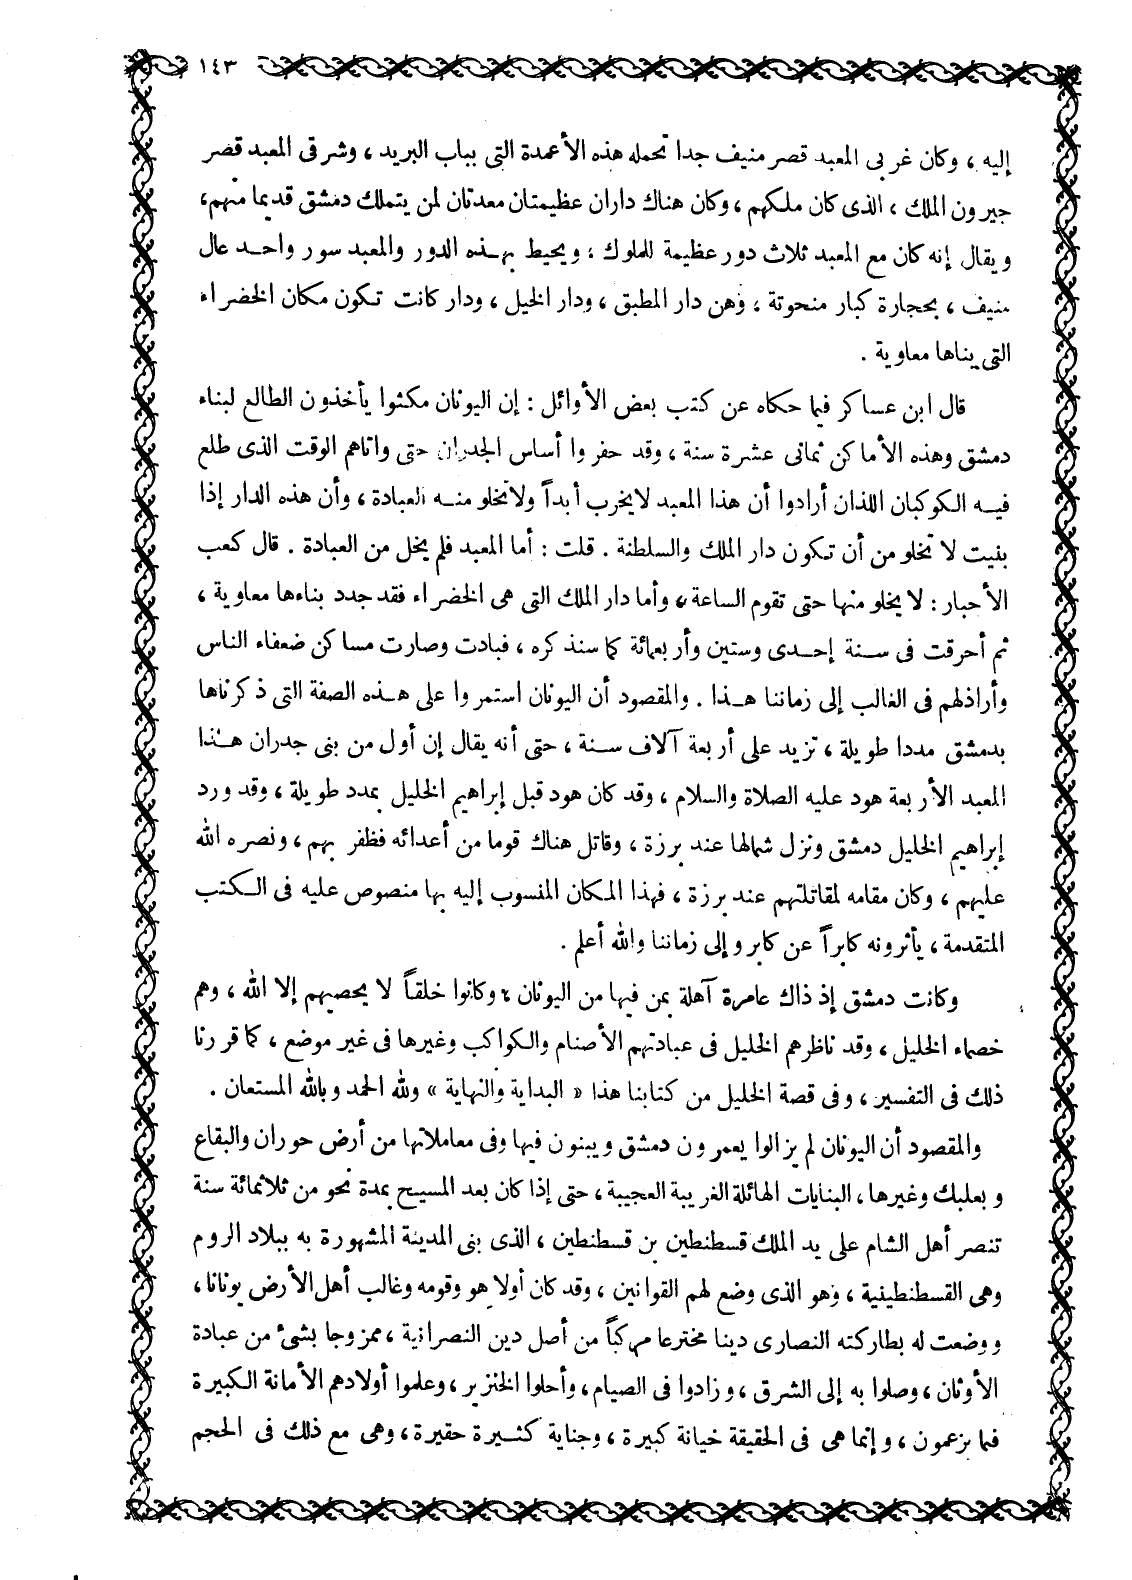 ١٤٣
إليه ، وكان غربى المعبد قصر منيف جدا تحمله هذه الأعمدة التى بباب البريد ، وشرقى المعبد قصر
جيرون الملك ، الذى كان ملكهم ، وكان هناك داران عظيمتان معدتان لمن يتملك دمشق قديما منهم ،
ويقال إنه كان مع المعبد ثلاث دور عظيمة للملوك ، ويحيط بهذه الدور والمعبد سور واحد عال
منيف ، بحجارة كبار منحوتة ، وهن دار المطبق ، ودار الخيل ، ودار كانت تكون مكان الخضراء
التى بناها معاوية .
قال ابن عساكر فيما حكاه عن كتب بعض الأوائل : إن اليونان مكثوا يأخذون الطالع لبناء
دمشق وهذه الأماكن ثمانى عشرة سنة ، وقد حفروا أساس الجدران حتى واتاهم الوقت الذى طلع
فيه الكوكبان اللذان أرادوا أن هذا المعبد لايخرب أبداً ولاتخلو منه العبادة ، وأن هذه الدار إذا
بنيت لا تخلو من أن تكون دار الملك والسلطنة . قلت : أما المعبد فلم يخل من العبادة . قال كعب
الأحبار : لا يخلو منها حتى تقوم الساعة ، وأما دار الملك التى هى الخضراء فقد جدد بناءها معاوية ،
ثم أحرقت فى سنة إحدى وستين وأربعمائة كما سنذكره ، فبادت وصارت مساكن ضعفاء الناس
وأراذلهم فى الغالب إلى زماننا هذا . والمقصود أن اليونان استمروا على هذه الصفة التى ذكرناها
بدمشق مددا طويلة ، تزيد على أربعة آلاف سنة ، حتى أنه يقال إن أول من بنى جدران هذا
المعبد الأربعة هود عليه الصلاة والسلام ، وقد كان هود قبل إبراهيم الخليل بمدد طويلة ، وقد ورد
إبراهيم الخليل دمشق ونزل شمالها عند برزة ، وقاتل هناك قوما من أعدائه فظفر بهم ، ونصره الله
عليهم ، وكان مقامه لمقاتلتهم عند برزة ، فهذا المكان المنسوب إليه بها منصوص عليه فى الكتب
المتقدمة ، يأثرونه كابراً عن كابر وإلى زماننا والله أعلم .
وكانت دمشق إذ ذاك عامرة آهلة بمن فيها من اليونان ، وكانوا خلقاً لا يحصيهم إلا الله ، وهم
خصماء الخليل ، وقد ناظرهم الخليل فى عبادتهم الأصنام والكواكب وغيرها فى غير موضع ، كما قررنا
ذلك فى التفسير ، وفى قصة الخليل من كتابنا هذا « البداية والنهاية » ولله الحمد وبالله المستعان .
والمقصود أن اليونان لم يزالوا يعمرون دمشق ويبنون فيها وفى معاملاتها من أرض حوران والبقاع
وبعلبك وغيرها ، البنايات الهائلة الغريبة العجيبة ، حتى إذا كان بعد المسيح بمدة نحو من ثلاثمائة سنة
تنصر أهل الشام على يد الملك قسطنطين بن قسطنطين ، الذى بنى المدينة المشهورة به ببلاد الروم
وهى القسطنطينية ، وهو الذى وضع لهم القوانين ، وقد كان أولا هو وقومه وغالب أهل الأرض يونانا ،
ووضعت له بطاركته النصارى دينا مخترعا مركباً من أصل دين النصرانية ، ممزوجا بشئ من عبادة
الأوثان ، وصلوا به إلى الشرق ، وزادوا فى الصيام ، وأحلوا الخنزير ، وعلموا أولادهم الأمانة الكبيرة
فيما يزعمون ، وإنما هى فى الحقيقة خيانة كبيرة ، وجناية كثيرة حقيرة ، وهى مع ذلك فى الحجم